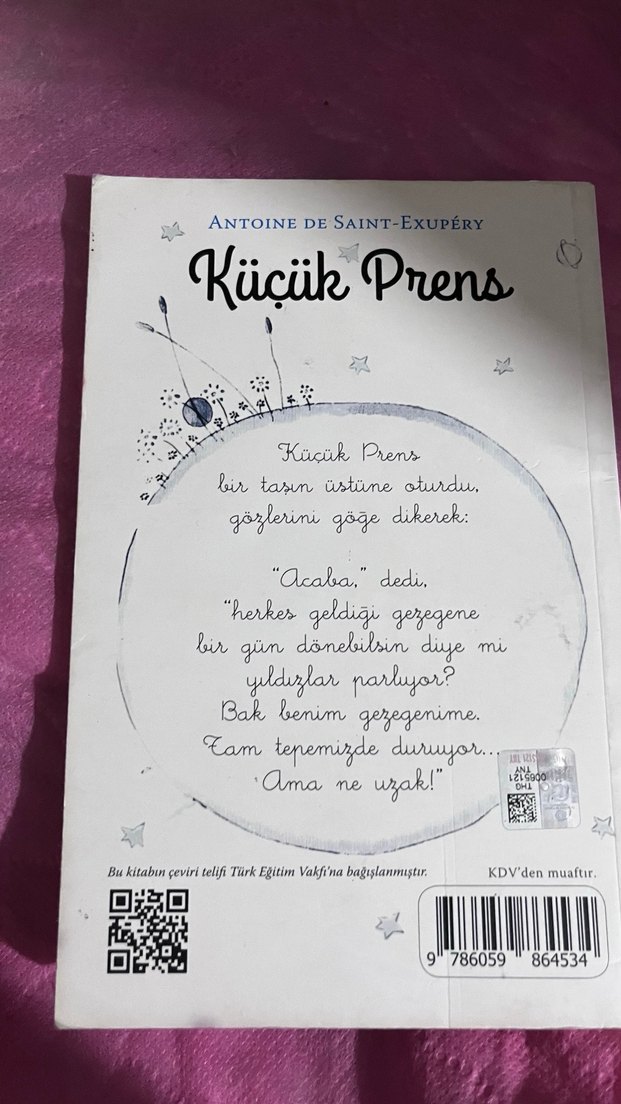 ANTOINE DE SAINT-EXUPÉRY
Küçük Prens
Küçük Prens
bir taşın üstüne oturdu,
gözlerini göğe dikerek:
“Acaba,” dedi,
“herkes geldiği gezegene
bir gün dönebilsin diye mi
yıldızlar parlıyor?
Bak benim gezegenime.
Tam tepemizde duruyor...
Ama ne uzak!”
THG
0085121
TNY
Bu kitabın çeviri telifi Türk Eğitim Vakfı'na bağışlanmıştır.
KDV'den muaftır.
9 786059 864534